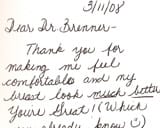 3/11/08
Dear Dr. Brenner-
Thank you for
making me feel
comfortable and my
breast look much better
You're Great! (Which
you already know ☺)